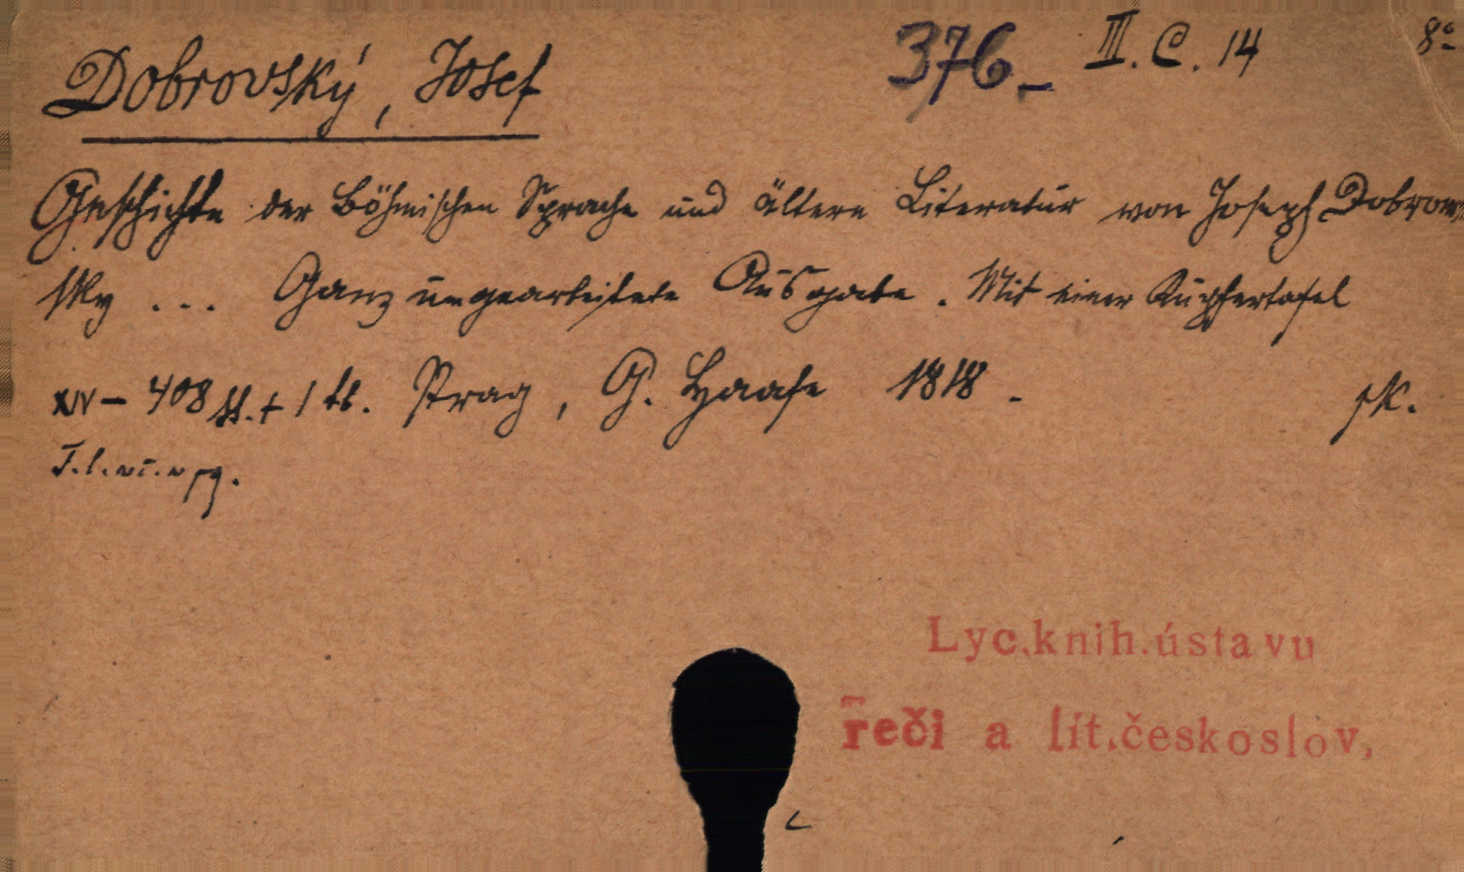 Dobrovský, Josef 376– III. C. 14 8°
Geschichte der Böhmischen Sprache und ältern Literatur von Joseph Dobrow-
sky ... Ganz umgearbeitete Ausgabe. Mit einer Kupfertafel
XIV – 408 ss. + 1 tb. Prag, G. Haase 1818. pk.
Lyc. knih. ústavu
řeči a lit. českoslov,